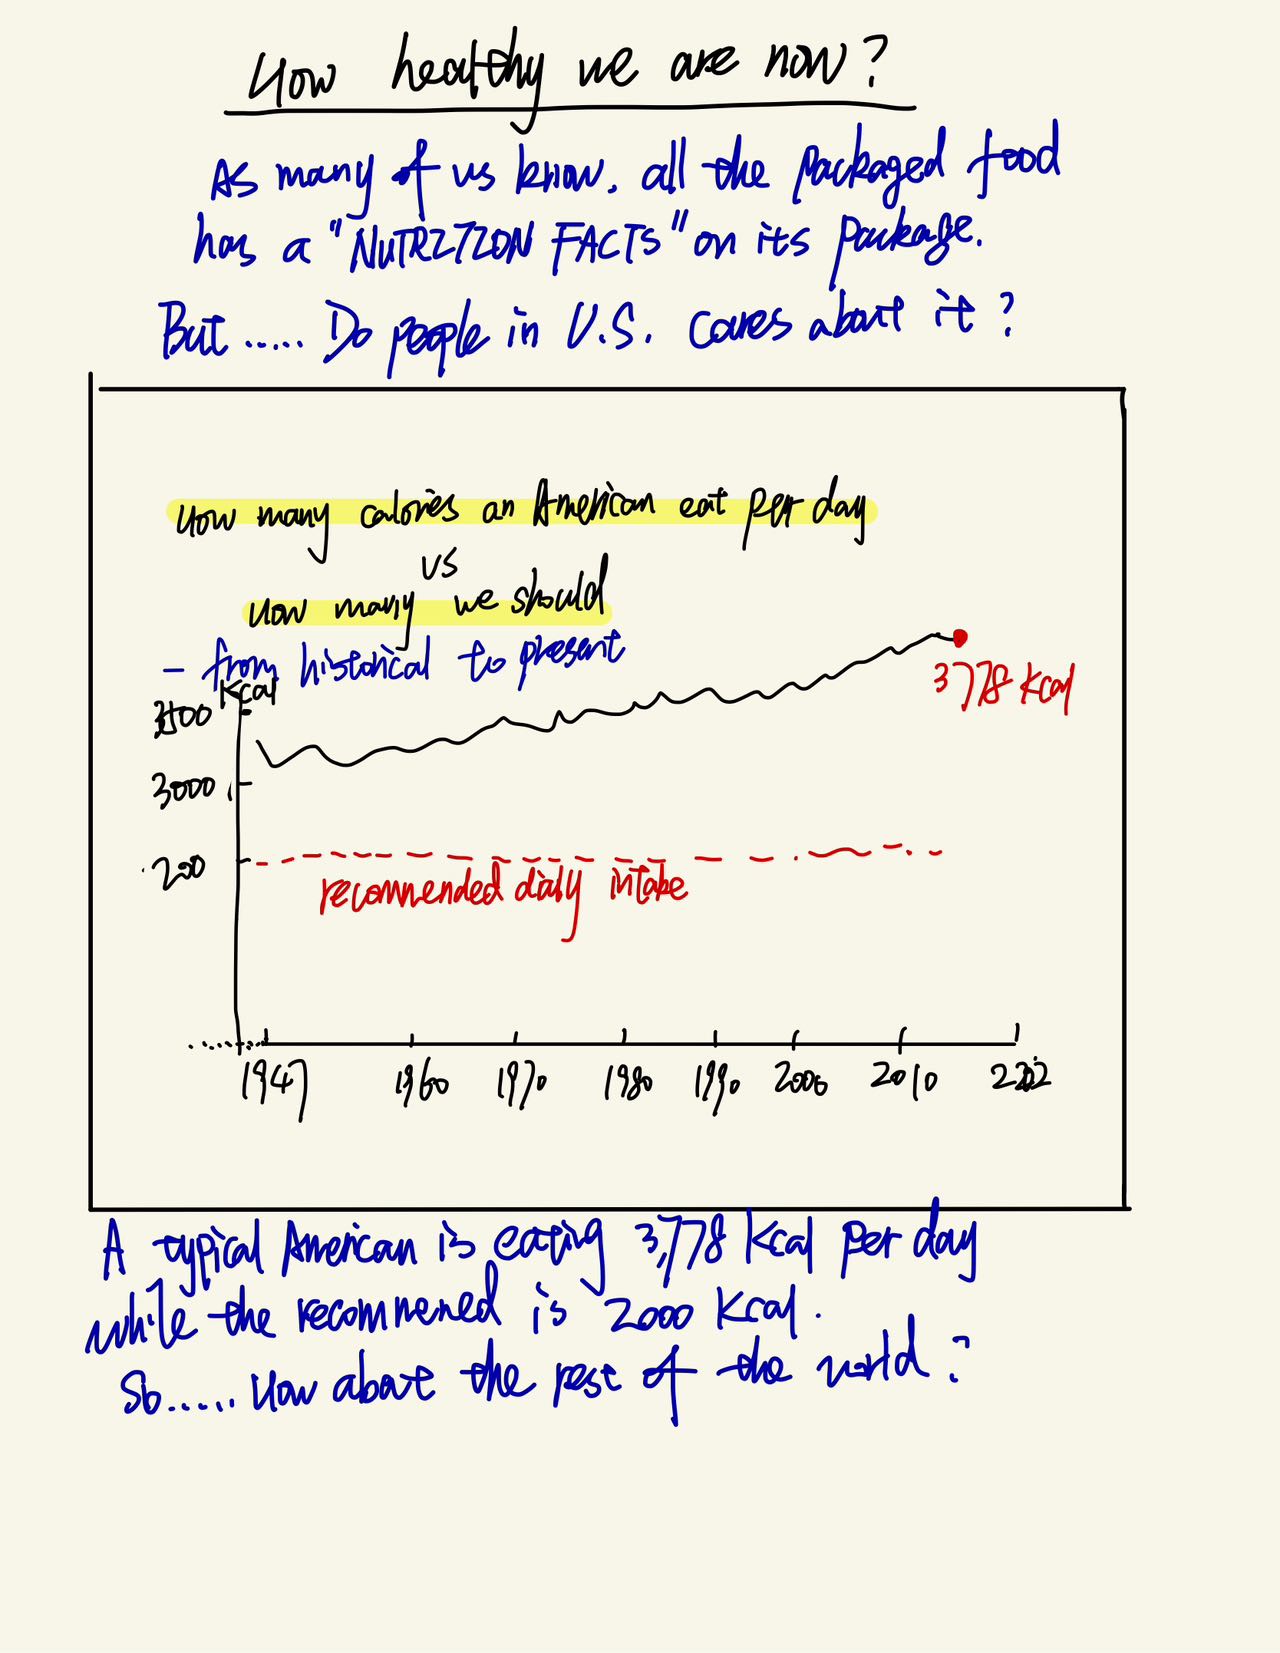 How healthy we are now?
As many of us know, all the packaged food
has a "NUTRITION FACTS" on its package.
But ..... Do people in U.S. cares about it?
How many calories an American eat per day
vs
How many we should
- from historical to present
Kcal
3500
3778 Kcal
3000
200
recommended daily intake
1947 1960 1970 1980 1990 2000 2010
A typical American is eating 3,778 Kcal per day
while the recommened is 2000 Kcal.
So ..... How about the rest of the world?